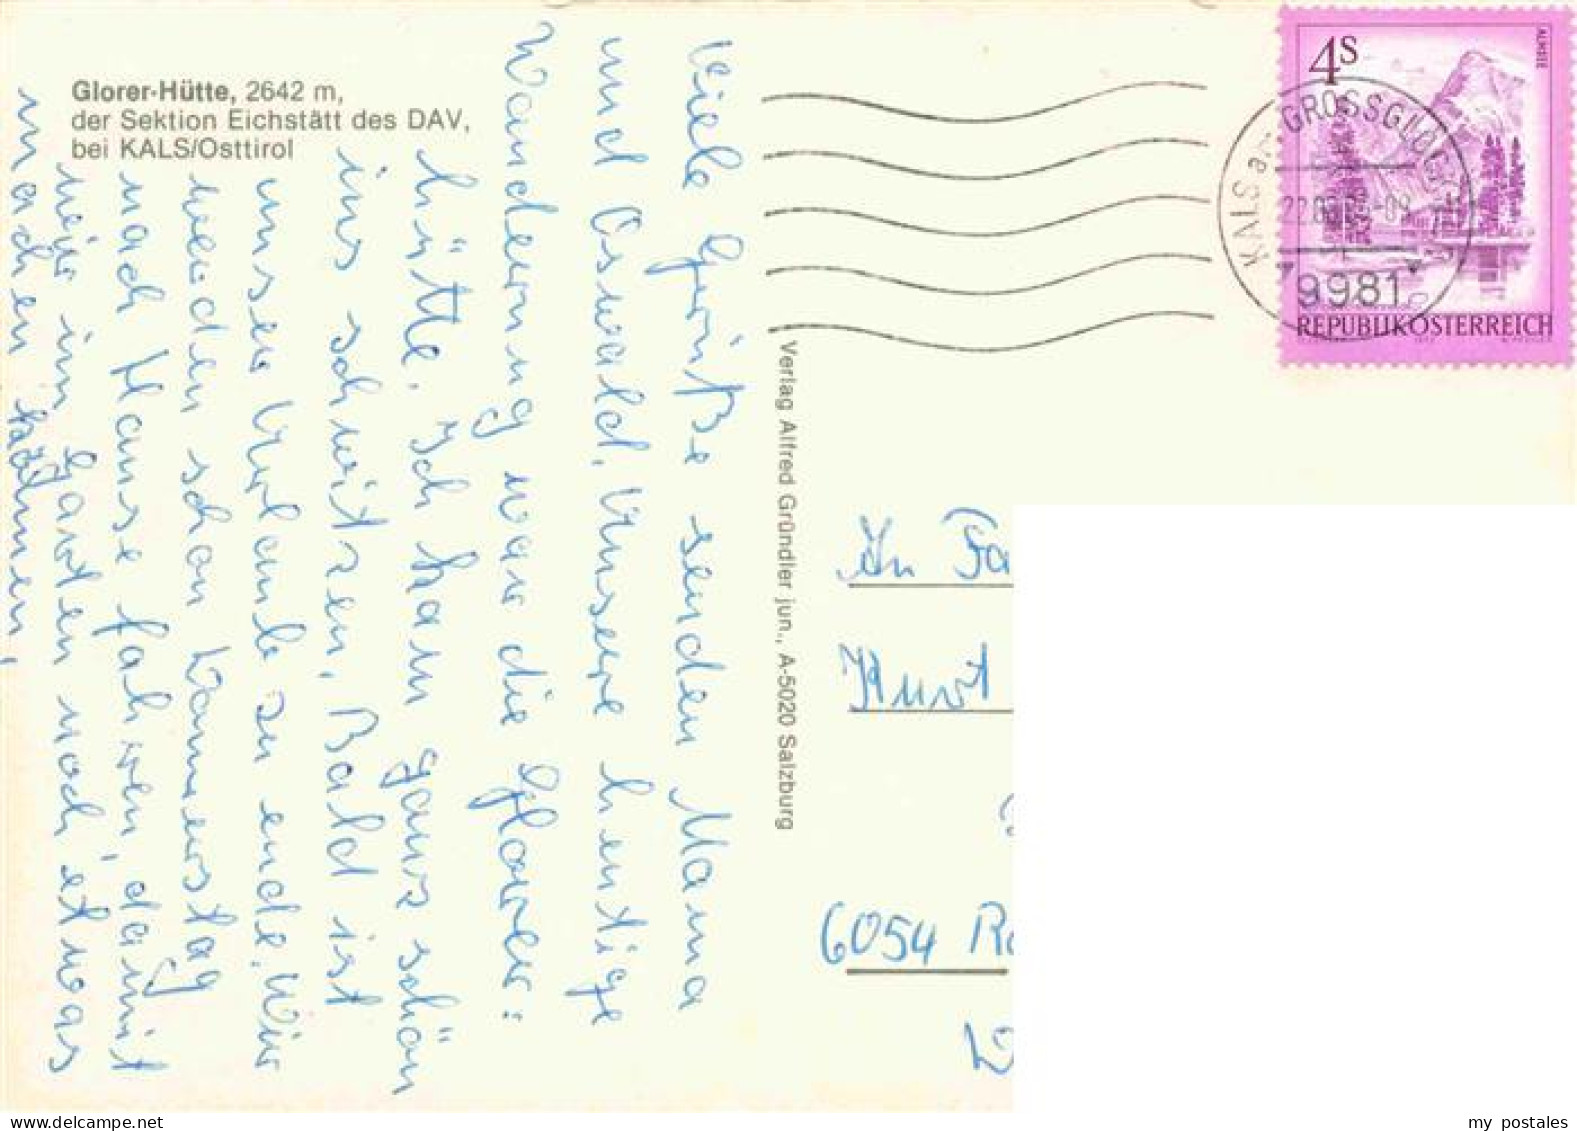 Glorer-Hütte, 2642 m,
der Sektion Eichstätt des DAV,
bei KALS/Osttirol
Viele Grüße senden Mama
und Oswald. Unsere heutige
Wanderung war die Glorer:
hütte. Ich kam ganz schön
ins schwitzen. Bald ist
unser Urlaub zu ende. Wir
werden schon Donnerstag
nach Hause fahren, damit
wir im Garten noch etwas
machen können.
Verlag Alfred Gründler jun., A-5020 Salzburg
4S
ALMSEE
REPUBLIK ÖSTERREICH
KALS am GROSSGLOCKNER
9981
An Fa
Kurt
6054 Ro
my postales